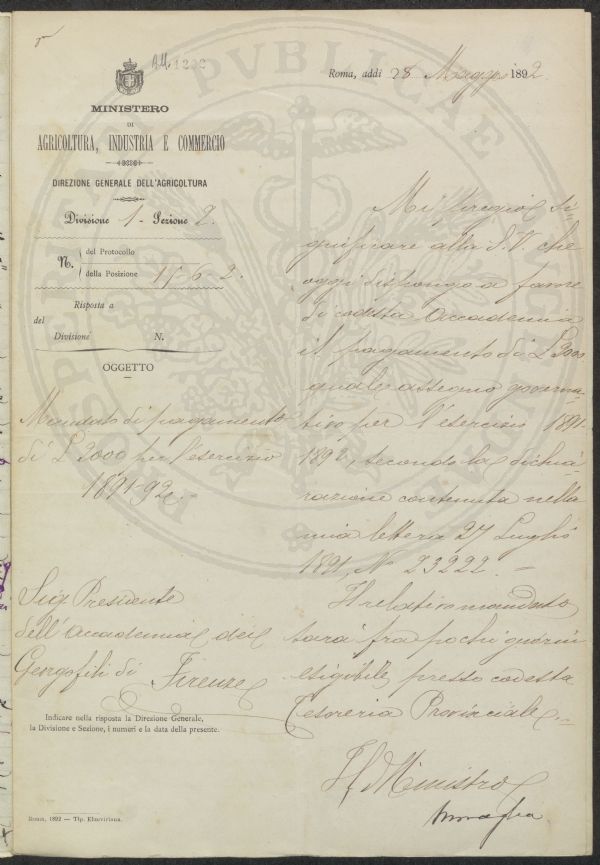 1202
Roma, addì 28 Maggio 1892
MINISTERO
DI
AGRICOLTURA, INDUSTRIA E COMMERCIO
DIREZIONE GENERALE DELL'AGRICOLTURA
Divisione 1 - Sezione 2.
N.
del Protocollo
della Posizione 2.
Risposta a
del
Divisione N.
OGGETTO
Mandato di pagamento
di £ 3000 per l'esercizio
1891-92.-
Sig Presidente
dell'Accademia dei
Georgofili di Firenze
Indicare nella risposta la Direzione Generale,
la Divisione e Sezione, i numeri e la data della presente.
Roma, 1892 — Tip. Elzeviriana.
Mi pregio si=
gnificare alla S. V. che
oggi dispongo a favore
di codesta Accademia
il pagamento di £ 3000
quale assegno governa=
tivo per l'esercizio 1891-
1892, secondo la dichia=
razione contenuta nella
mia lettera 27 Luglio
1891, No 23222. -
Il relativo mandato
sarà fra pochi giorni
esigibile presso codesta
Tesoreria Provinciale.-
Il Ministro
PVBLICAE
PROSPERITATI